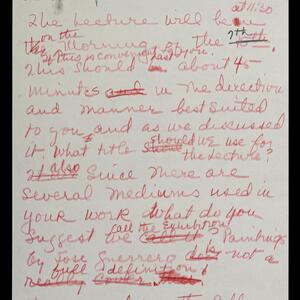 at 11:30
The Lecture will be
on the
the morning of the 7th 10th
If this is convenient for you.
This should last about 45
minutes and in the direction
and manner best suited
to you and as we discussed
it. What title should should we use for
the Lecture!
It also Since there are
several mediums used in
your work what do you
suggest we call the Exhibition call it Paintings
by Jose Guerrero does is not a
full definition!
really cover